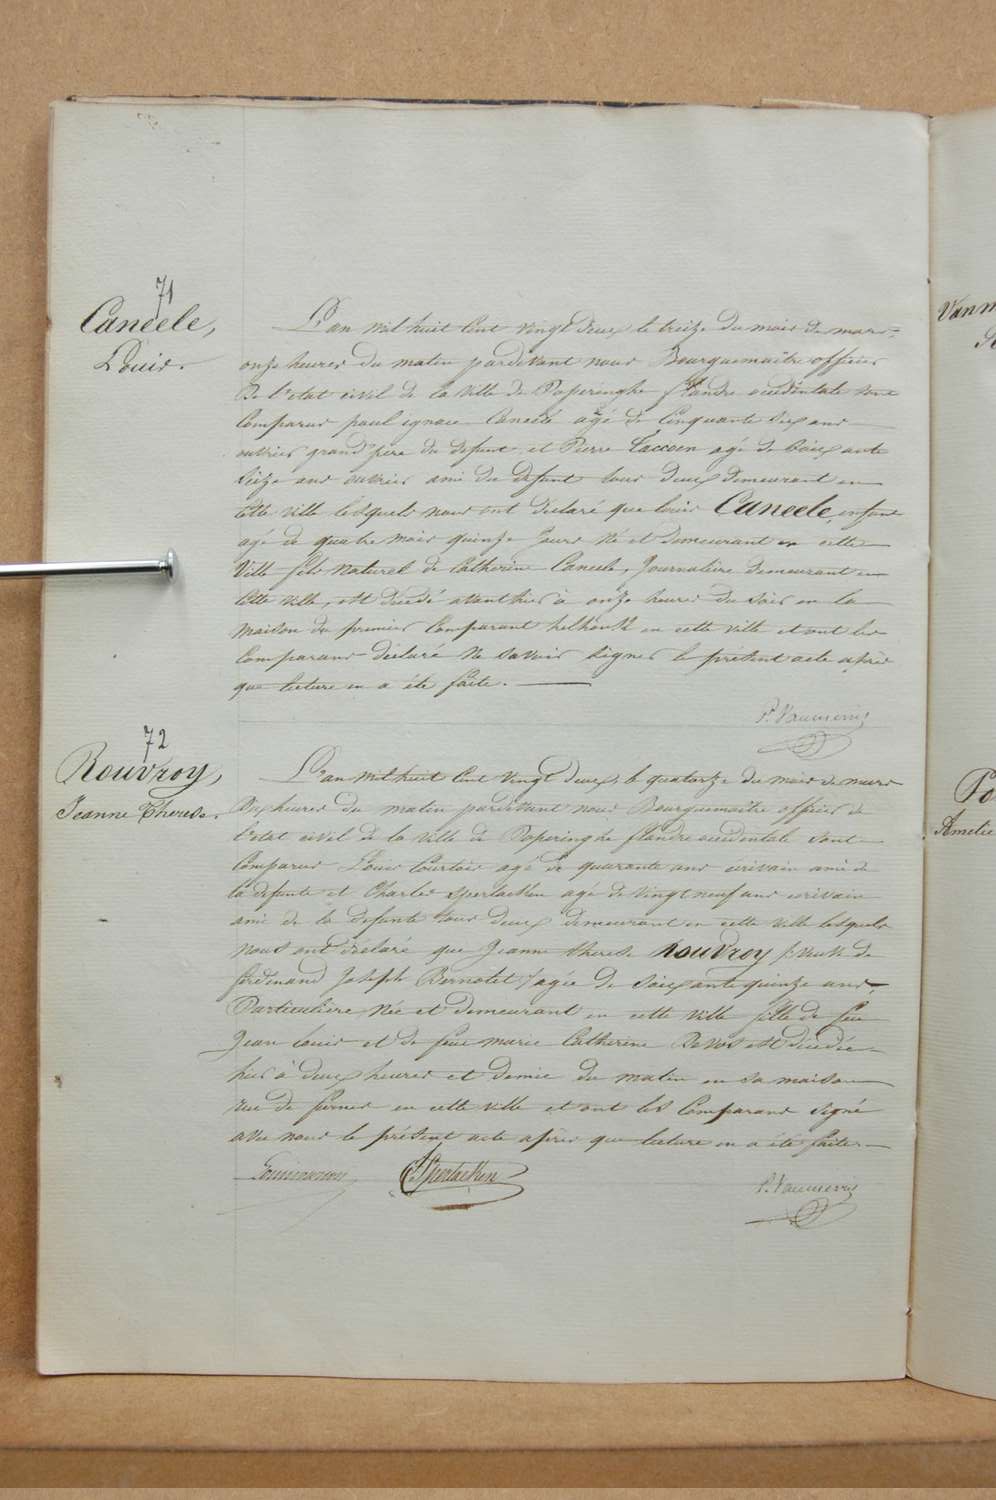 71
Caneele,
Louis.
L'an mil huit cent vingt deux le treize du mois de mars
onze heures du matin pardevant nous Bourguemaitre officier
De l'etat civil de la ville de Poperinghe flandre occidentale sont
Comparus paul ignace Caneele agé de Cinquante six ans
ouvrier grand'père du defunt, et Pierre Caccoen agé de Soixante
Seize ans ouvrier ami du defunt tous deux demeurant en
cette ville lesquels nous ont déclaré que louis Caneele, enfant
agé de quatre mois quinze jours né et demeurant en cette
Ville fils naturel de Catherine Caneele, Journaliere demeurant en
Cette ville, est décédé avant hier à onze heures du soir en la
maison du premier Comparant en cette ville et ont les
Comparans déclaré ne savoir signer le présent acte après
que lecture en a été faite.
P. Vanmerris
72
Rouvroy,
Jeanne Therese.
L'an mil huit cent vingt deux, le quatorze du mois de mars
Dix heures du matin pardevant nous Bourguemaitre officier de
l'etat civil de la ville de Poperinghe flandre occidentale sont
Comparus Louis Courtois agé de quarante ans ecrivain ami de
la defunte et Charles Sperlaeken agé de vingt neuf ans ecrivain
ami de la defunte tous deux demeurant en cette ville lesquels
nous ont déclaré que Jeanne therese Rouvroy (veuve de
ferdinand Joseph Bernolet) agée de Soixante quinze ans,
Particulière, Née et demeurant en cette ville fille de feu
Jean Louis et de feue marie Catherine Devos est décédée
hier à deux heures et demie du matin en sa maison
rue de furnes en cette ville et ont les Comparans signé
avec nous le présent acte après que lecture en a été faite.
C. Sperlaeken
P. Vanmerris
Vanm
Po
Amelie